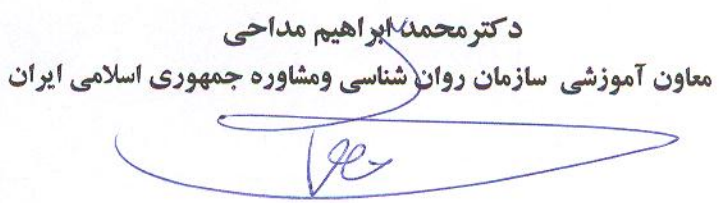 دکتر محمد ابراهیم مداحی
معاون آموزشی سازمان روان شناسی ومشاوره جمهوری اسلامی ایران